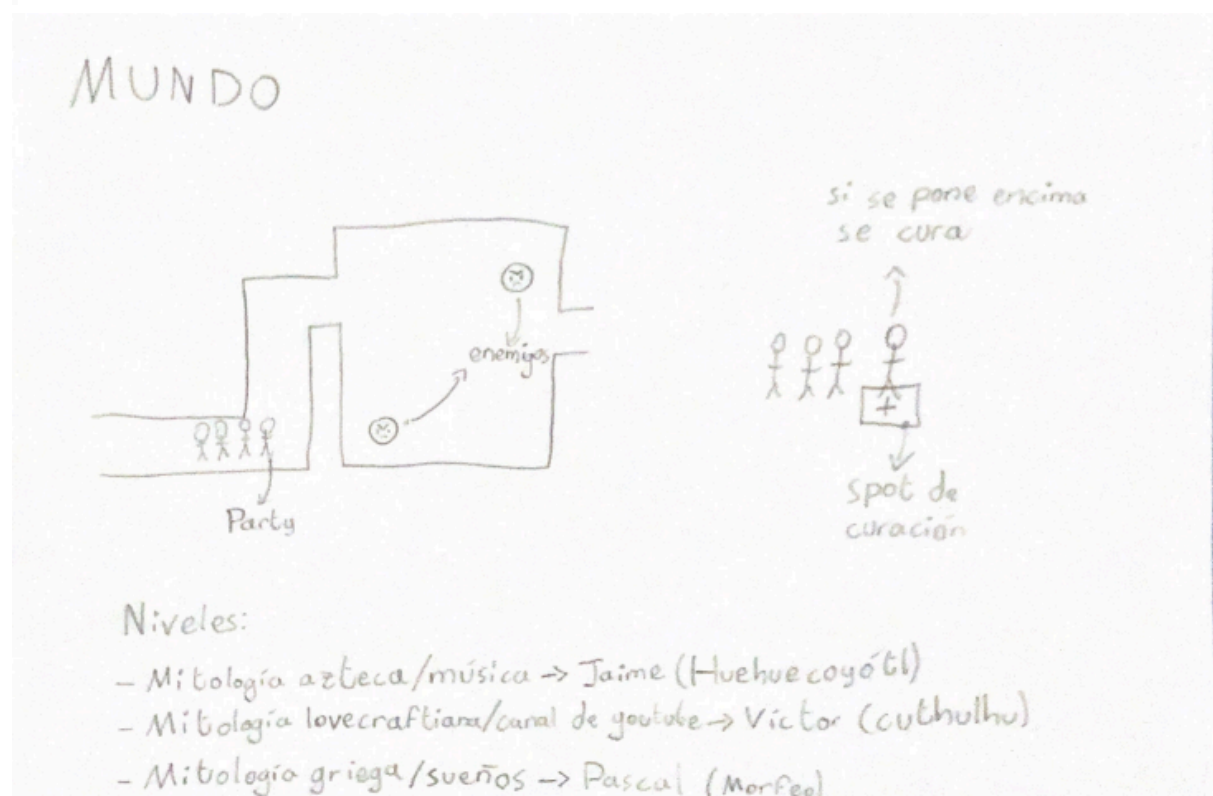 MUNDO
si se pone encima
se cura
enemigos
Party
+
spot de
curación
Niveles:
- Mitología azteca/música -> Jaime (Huehuecoyótl)
- Mitología lovecraftiana/canal de youtube -> Víctor (cuthulhu)
- Mitología griega/sueños -> Pascal (Morfeo)